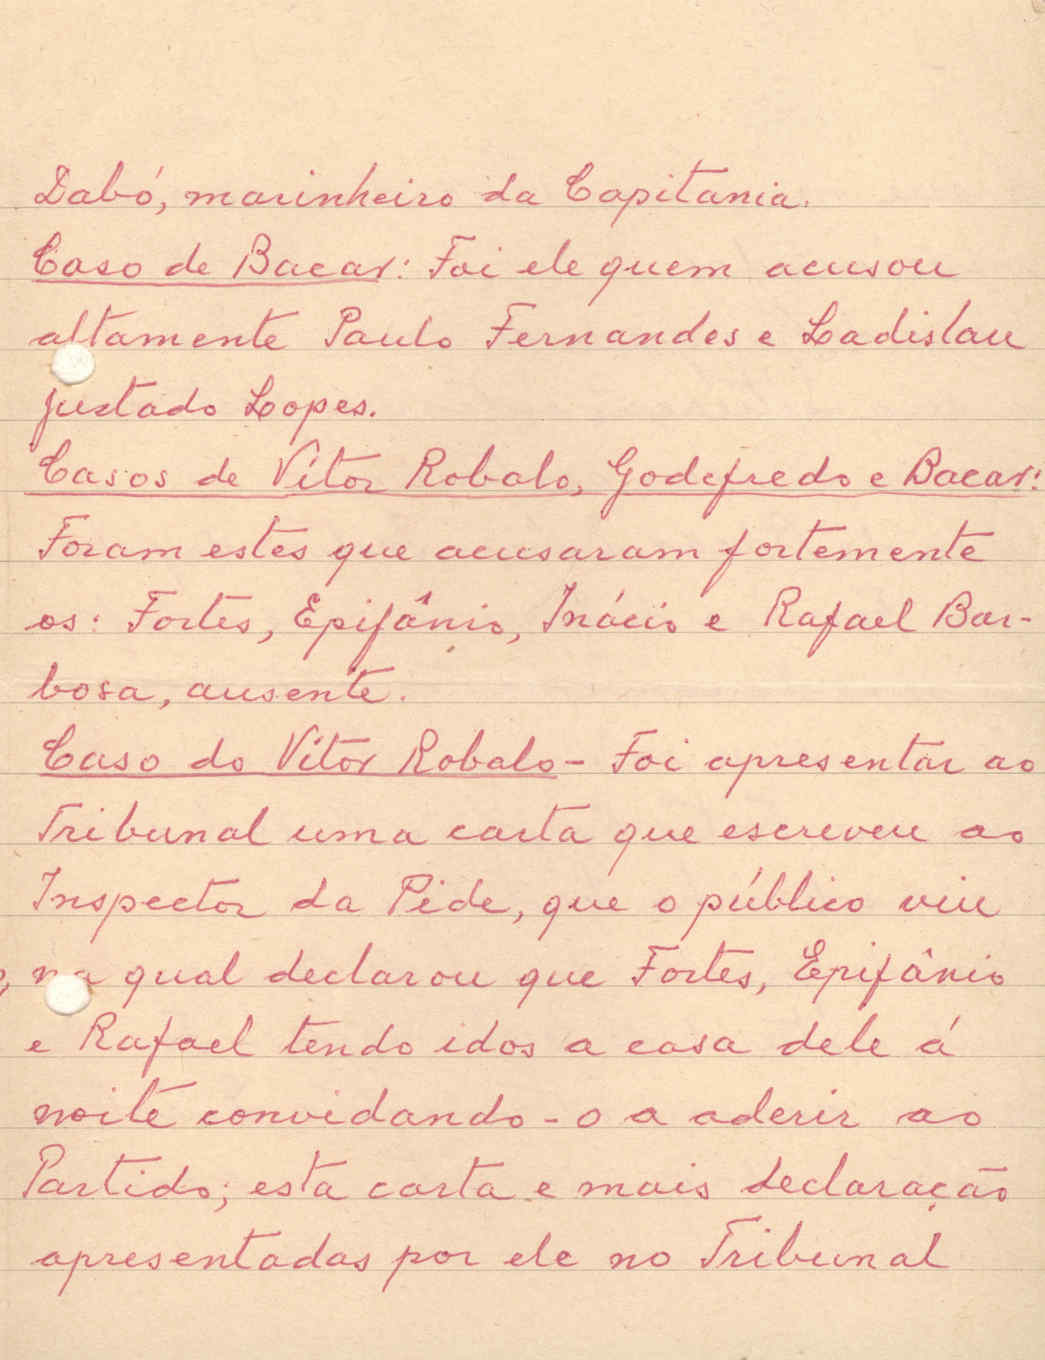 Dabó, marinheiro da Capitania.
Caso de Bacar: Foi ele quem acusou
altamente Paulo Fernandes e Ladislau
Justado Lopes.
Casos de Vítor Robalo, Godefredo e Bacar:
Foram estes que acusaram fortemente
os: Fortes, Epifânio, Inácio e Rafael Bar-
bosa, ausente.
Caso do Vítor Robalo - Foi apresentar ao
Tribunal uma carta que escreveu ao
Inspector da Pide, que o público viu
na qual declarou que Fortes, Epifânio
e Rafael tendo idos a casa dele á
noite convidando-o a aderir ao
Partido; esta carta e mais declaração
apresentadas por ele no Tribunal